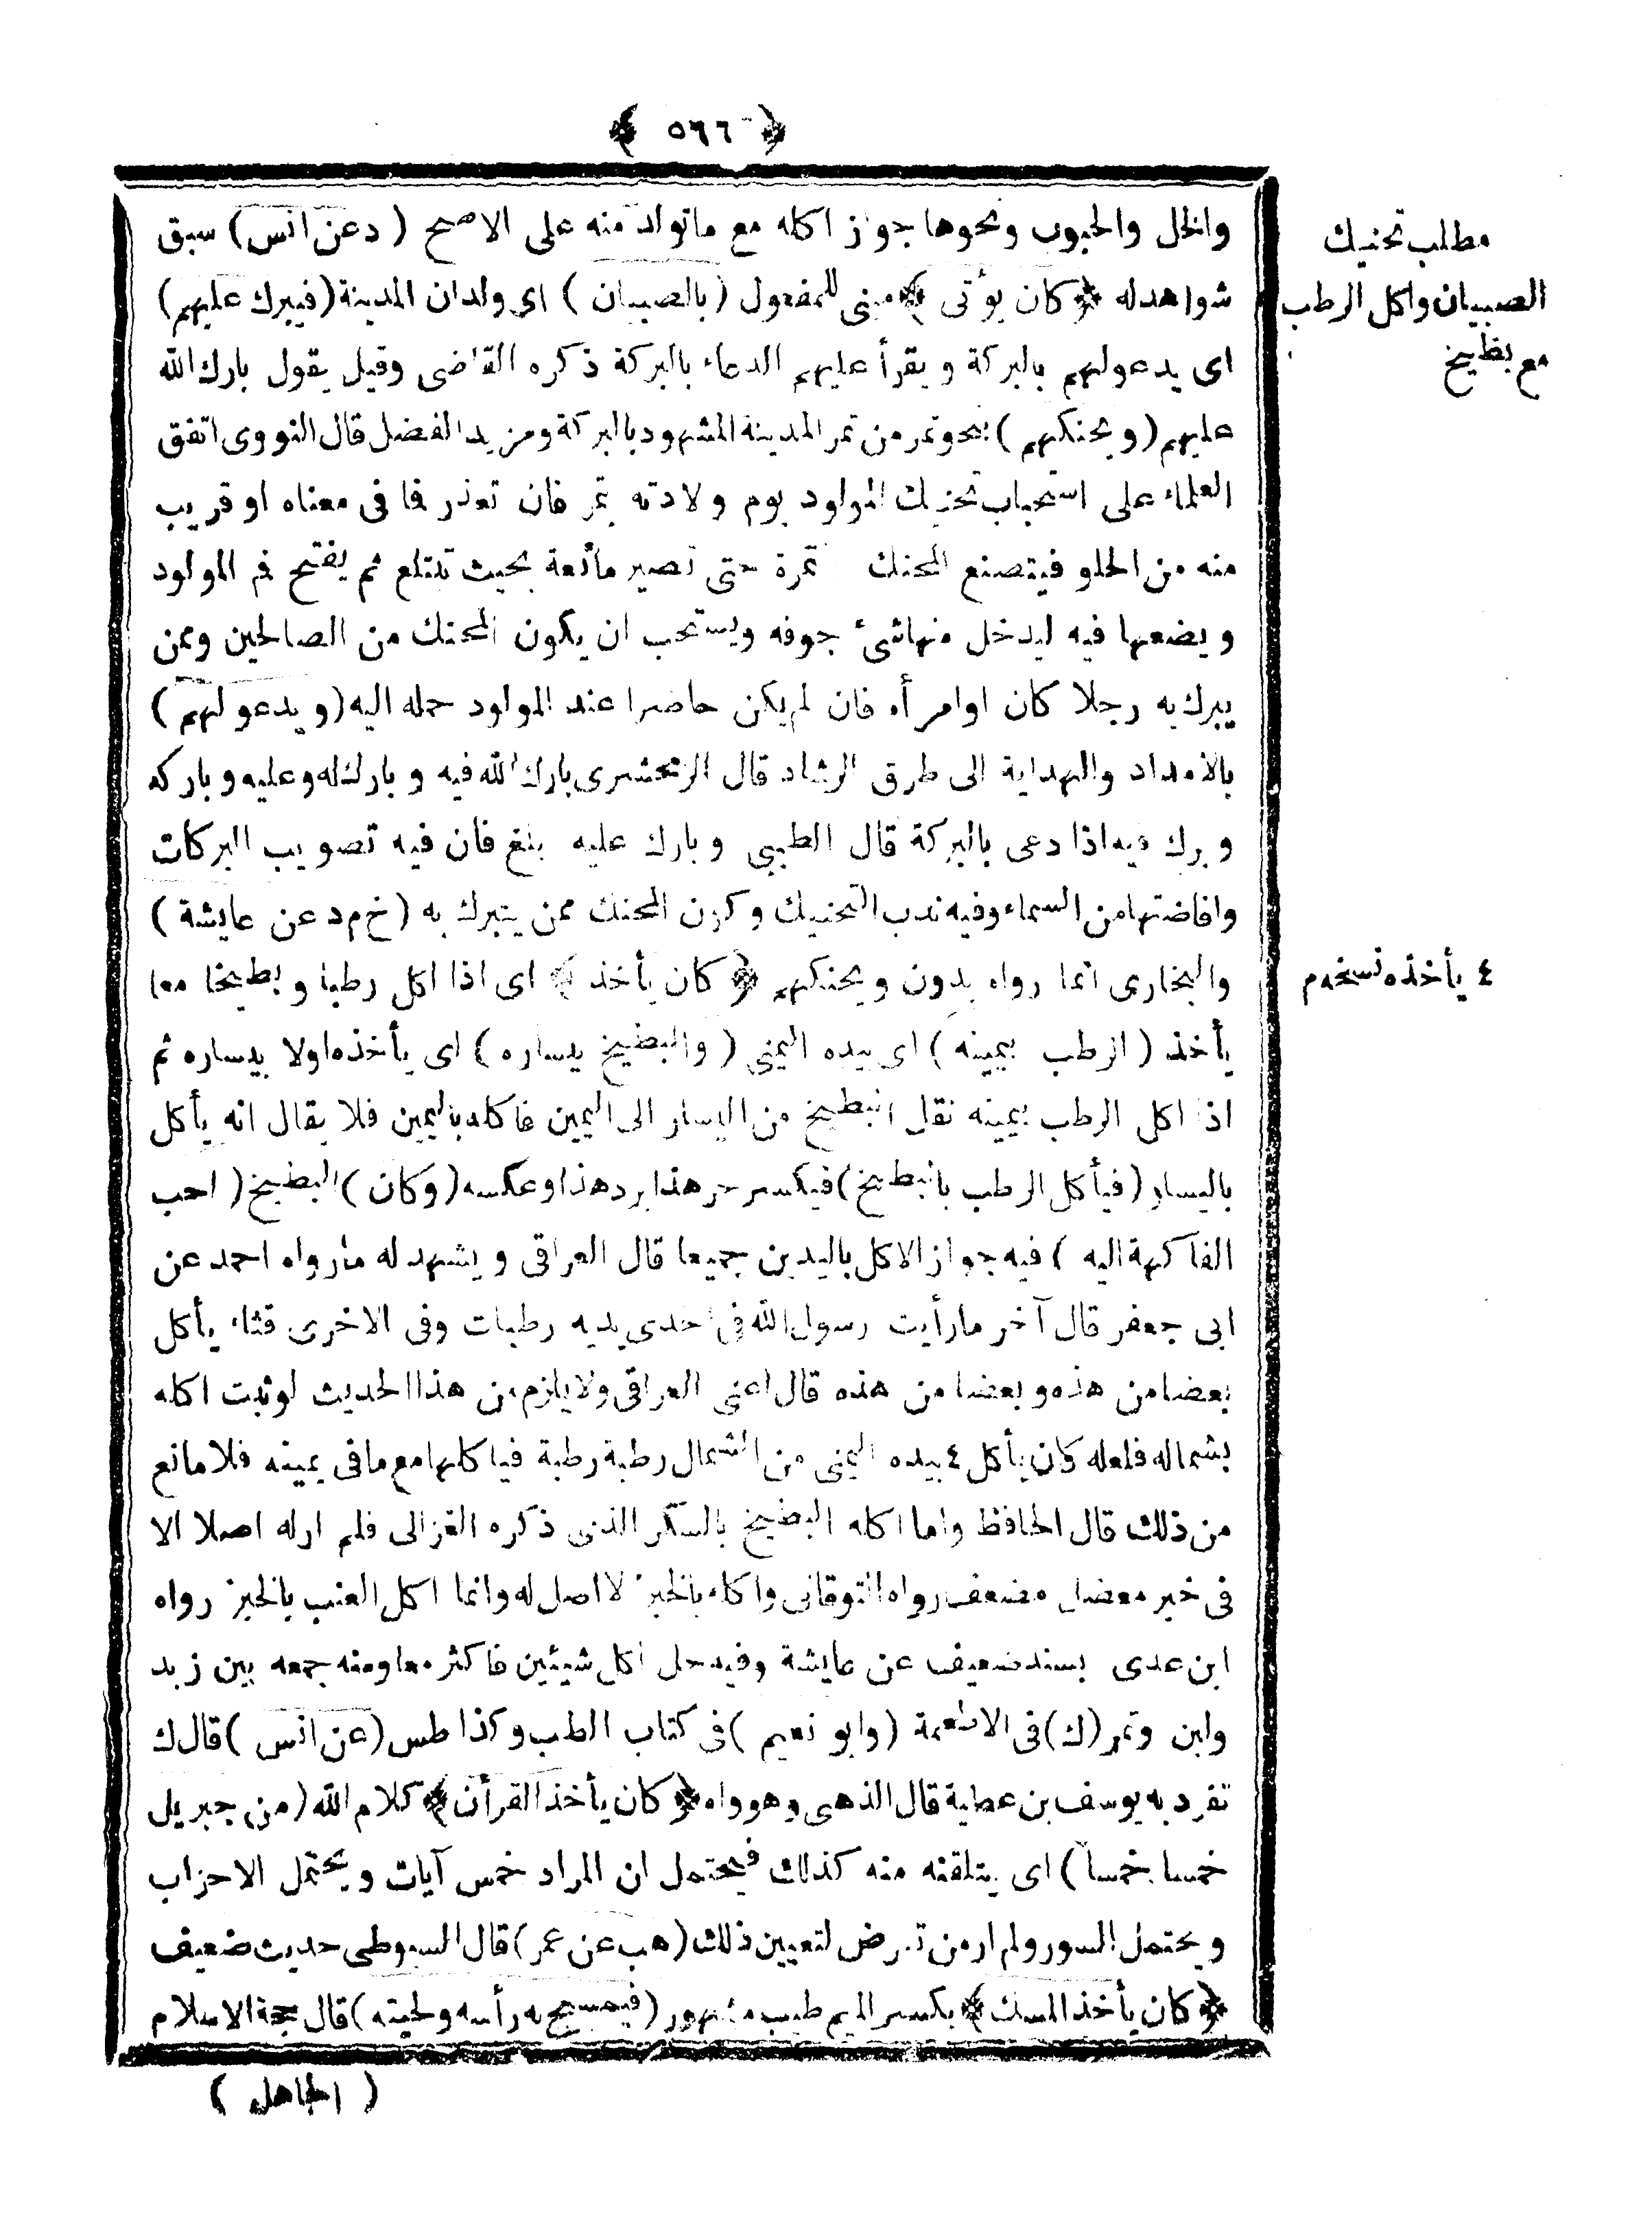 ﴿ ٥٦٦ ﴾
والخل والحبوب ونحوها جواز اكله مع ماتولد منه على الاصح ( د عن انس ) سبق
شواهد له ﴿ كان يؤتى ﴾ مبنى للمفعول ( بالصبيان ) اى ولدان المدينة ( فيبرك عليهم )
اى يدعولهم بالبركة ويقرأ عليهم الدعاء بالبركة ذكره القاضى وقيل يقول بارك الله
عليهم ( ويحنكهم ) بنحو تمر من تمر المدينة المشهود بالبركة ومزيد الفضل قال النووى اتفق
العلماء على استحباب تحنيك المولود يوم ولادته بتمر فان تعذر فما فى معناه او قريب
منه من الحلو فيتصنع المحنك تمرة حتى تصير مائعة بحيث تبتلع ثم يفتح فم المولود
ويضعها فيه ليدخل منها شئ جوفه ويستحب ان يكون المحنك من الصالحين وممن
يبرك به رجلا كان اوامرأه فان لم يكن حاضرا عند المولود حمله اليه ( ويدعو لهم )
بالامداد والهداية الى طرق الرشاد قال الزمخشرى بارك الله فيه وبارك له وعليه وباركه
وبرك فيه اذا دعى بالبركة قال الطيبى وبارك عليه بلغ فان فيه تصويب البركات
وافاضتها من السماء وفيه ندب التحنيك وكون المحنك ممن يتبرك به ( خ م د عن عايشة )
والبخارى انما رواه بدون ويحنكهم ﴿ كان يأخذ ﴾ اى اذا اكل رطبا وبطيخا معا
يأخذ ( الرطب بيمينه ) اى بيده اليمنى ( والبطيخ بيساره ) اى يأخذه اولا بيساره ثم
اذا اكل الرطب بيمينه نقل البطيخ من اليسار الى اليمين فاكله باليمين فلا يقال انه يأكل
باليسار ( فيأكل الرطب بالبطيخ ) فيكسر حر هذا برد هذا وعكسه ( وكان ) البطيخ ( احب
الفاكهة اليه ) فيه جواز الاكل باليدين جميعا قال العراقى ويشهد له مارواه احمد عن
ابى جعفر قال آخر مارأيت رسول الله فى احدى يديه رطبات وفى الاخرى قثاء يأكل
بعضا من هذه وبعضا من هذه قال اعنى العراقى ولا يلزم من هذا الحديث لو ثبت اكله
بشماله فلعله كان يأكل ٤ بيده اليمنى من الشمال رطبة رطبة فياكلها مع مافى يمينه فلا مانع
من ذلك قال الحافظ واما اكله البطيخ بالسكر الذى ذكره الغزالى فلم ارله اصلا الا
فى خبر معضل مضعف رواه التوقانى واكله بالخبز لا اصل له وانما اكل العنب بالخبز رواه
ابن عدى بسند ضعيف عن عايشة وفيه حل اكل شيئين فاكثر معا ومنه جمعه بين زبد
ولبن وتمر ( ك ) فى الاطعمة ( وابو نعيم ) فى كتاب الطب وكذا طس ( عن انس ) قال ك
تفرد به يوسف بن عطية قال الذهبى وهو واه ﴿ كان يأخذ القرأن ﴾ كلام الله ( من جبريل
خمسا خمسا ) اى يتلقنه منه كذلك فيحتمل ان المراد خمس آيات ويحتمل الاحزاب
ويحتمل السور ولم ار من تعرض لتعيين ذلك ( هب عن عمر ) قال السيوطى حديث ضعيف
﴿ كان يأخذ المسك ﴾ بكسر الميم طيب مشهور ( فيمسح به رأسه ولحيته ) قال حجة الاسلام
( الجاهل )
مطلب تحنيك
الصبيان واكل الرطب
مع بطيخ
٤ يأخذه نسخه م